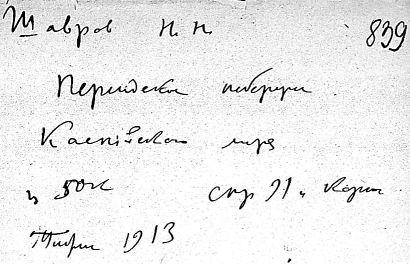 Шавров Н. Н. 839
Персидское побережье
Каспийского моря
ц 50 к стр 91 и карт
Тифлис 1913